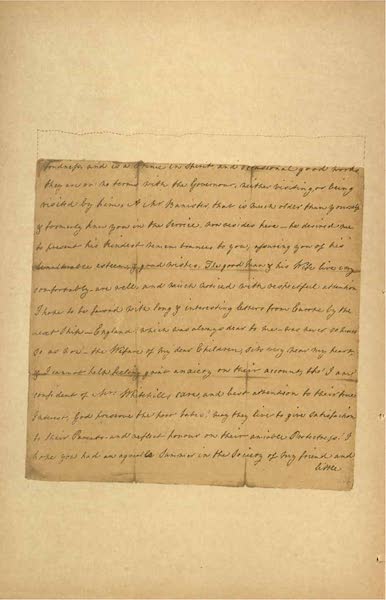 fondness and is a Prince in Spirit and occasional good works
they are on no terms with the Governour, neither visiting or being
visited by him; A Mr Bannister, that is much older than yourself
& formerly knew you in the Service, now resides here - he desired me
to present his kindest remembrances to you, assuring you of his
esteem & good wishes. The good Man & his Wife live very
comfortably - are well, and much noticed with respectful attention
I hope to be favored with long & interesting letters from Europe by the
next Ships - England (which was always dear to me - was never so
so as now - the Welfare of my dear Children, sits very near my heart,
& I cannot help feeling anxiety on their account, tho' I am
confident of Mrs care, and best attention to their true
Interest. God preserve the poor babes! may they live to give satisfaction
to their Parents and reflect honour on their amiable Protectress! I
hope you had an agreeable Summer in the Society of my friend and
little